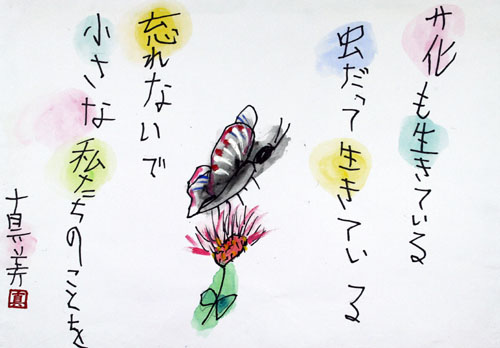 花も生きている
虫だって生きている
忘れないで
小さな私たちのことを
真美
真